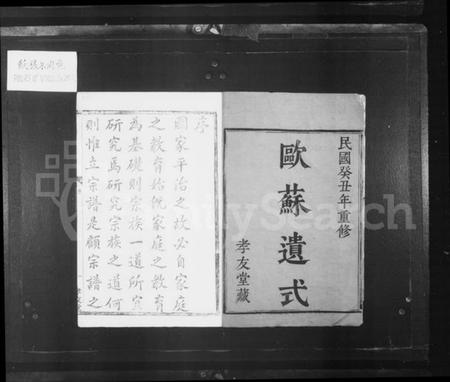 民國癸丑年重修
歐蘇遺式
孝友堂藏
序
國家平治之故必自家庭
之教育始他家庭之教育
為基礎則宗族一道所宜
研究焉研究宗族之道何
則惟立宗譜是顧宗譜之
FamilySearch